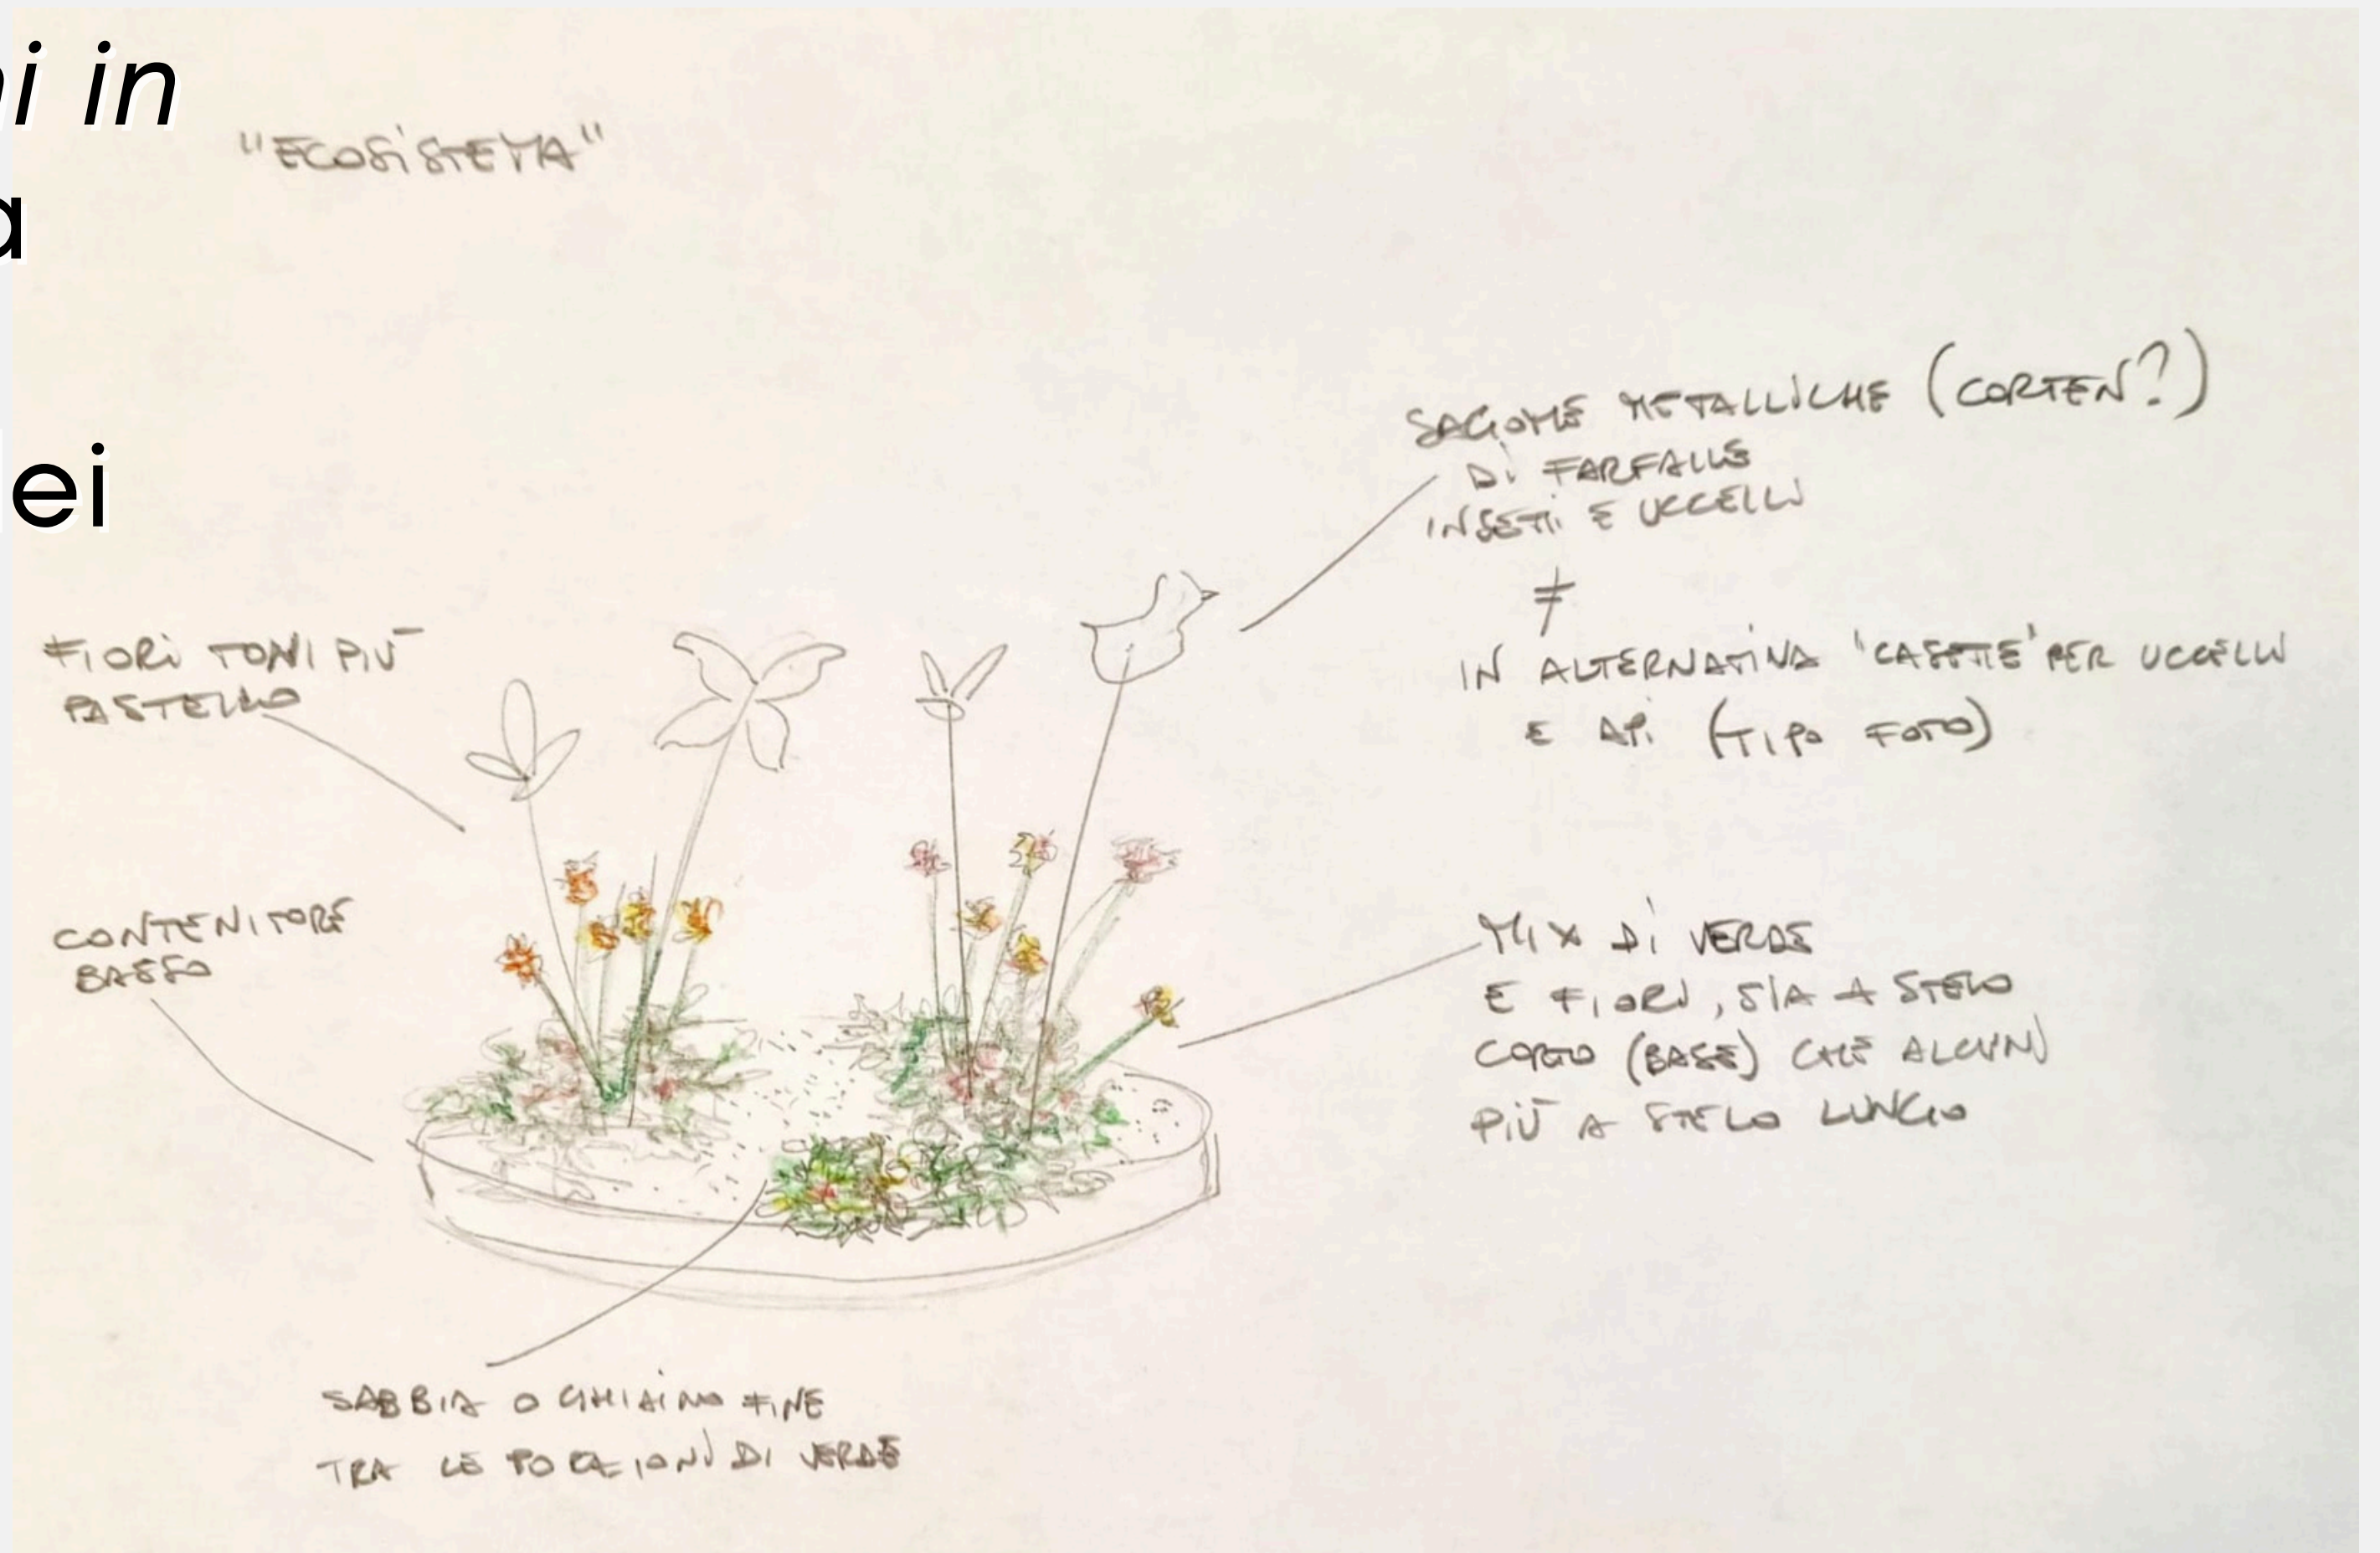 i in
a
ei
"ECOSISTEMA"
SAGOME METALLICHE (CORTEN?)
DI FARFALLE
INSETTI E UCCELLI
≠
IN ALTERNATIVA 'CASETTE' PER UCCELLI
E API (TIPO FOTO)
FIORI TONI PIÙ
PASTELLO
CONTENITORE
BASSO
MIX DI VERDE
E FIORI, SIA A STELO
CORTO (BASE) CHE ALCUNI
PIÙ A STELO LUNGO
SABBIA O GHIAINO FINE
TRA LE PORZIONI DI VERDE